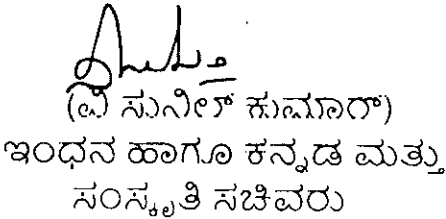 (ವಿ ಸುನೀಲ್ ಕುಮಾರ್)
ಇಂಧನ ಹಾಗೂ ಕನ್ನಡ ಮತ್ತು
ಸಂಸ್ಕೃತಿ ಸಚಿವರು